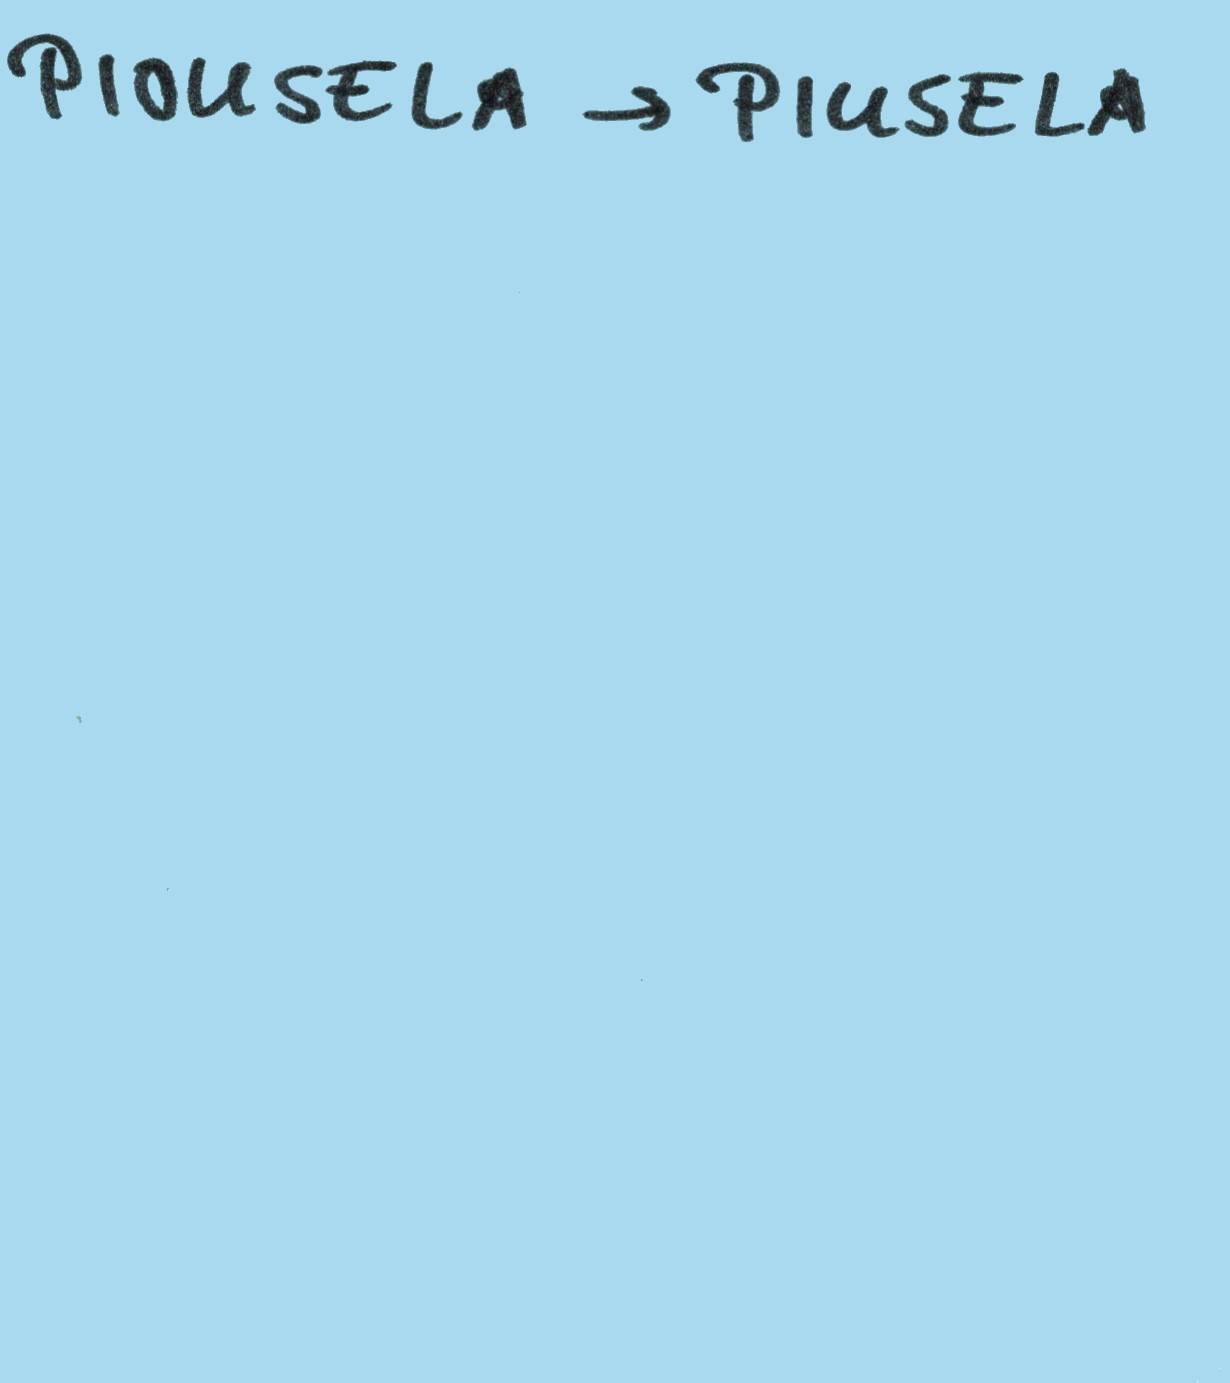 PIOUSELA → PIUSELA